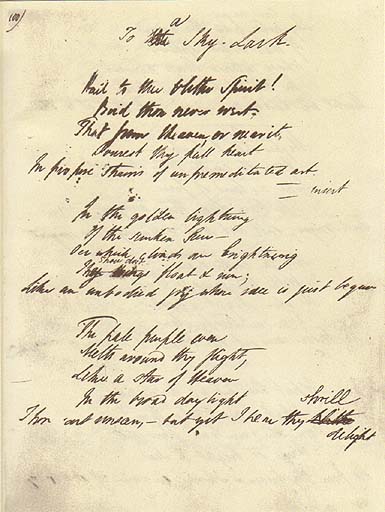 To the a Sky-Lark.
Hail to thee blithe Spirit!
Bird thou never wert.
That from Heaven or near it
Pourest thy full heart
In profuse strains of unpremeditated art
insert
In the golden lightning
Of the sunken Sun —
Oer which clouds are brightning
Thou dost float & run;
Like an unbodied joy whose race is just begun
The pale purple even
Melts around thy flight,
Like a star of Heaven
In the broad daylight
Thou art unseen, — but yet I hear thy shrill
delight